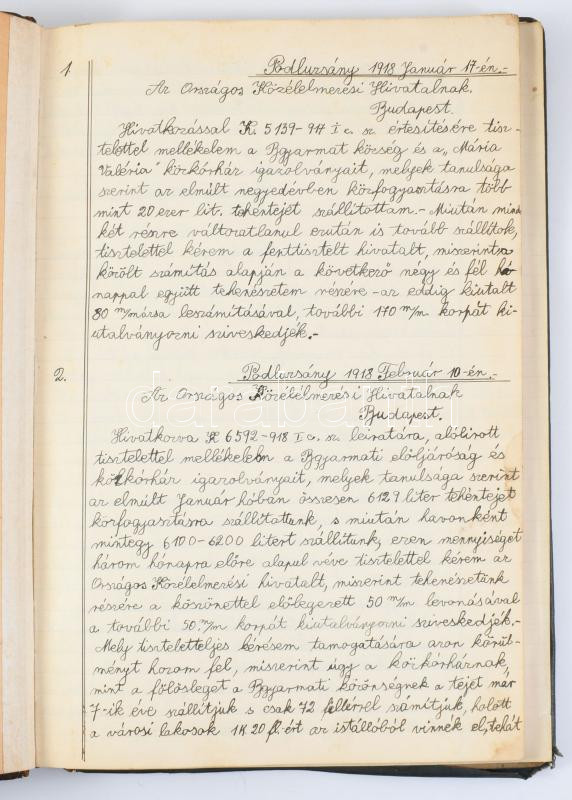 1.
Podluzsány 1918 Január 17-én.-
Az Országos Közélelmezési Hivatalnak.
Budapest.
Hivatkozással K. 5139-917 I c. sz. értesítésére tisz-
telettel mellékelem a Bgyarmat község és a „Mária
Valéria" közkórház igazolványait, melyek tanulsága
szerint az elmúlt negyedévben közfogyasztásra több
mint 20 ezer lit. tehéntejet szállítottam.- Miután mind
két részre változatlanul ezután is tovább szállítok,
tisztelettel kérem a fenttisztelt hivatalt, miszerint a
közölt számítás alapján a következő négy és fél hó
nappal együtt tehenészetem részére - az eddig kiutalt
80 m/mázsa leszámításával, további 170 m/m. korpát ki-
utalványozni sziveskedjék.-
2.
Podluzsány 1918 Február 10-én.-
Az Országos Közélelmezési Hivatalnak
Budapest.
Hivatkozva K 6592-918 I c. sz. leiratára, alólirott
tisztelettel mellékelem a Bgyarmati elöljáróság és
közkórház igazolványait, melyek tanulsága szerint
az elmúlt Január hóban összesen 6129 liter tehéntejet
közfogyasztásra szállítottunk, s miután havonként
mintegy 6100-6200 litert szállítunk, ezen mennyiséget
három hónapra előre alapul véve tisztelettel kérem az
Országos Közélelmezési hivatalt, miszerint tehenészetünk
részére a köszönettel előlegezett 50 m/m levonásával
a további 50 m/m korpát kiutalványozni sziveskedjék.-
Mely tiszteletteljes kérésem támogatására azon körül-
ményt hozom fel, miszerint úgy a közkórháznak,
mint a fölösleget a Bgyarmati közönségnek a tejet már
7-ik éve szállítjuk s csak 72 fillérrel számítjuk, holott
a városi lakosok 1K 20 fl.-ért az istállóból vinnék el, tehát
darabanth